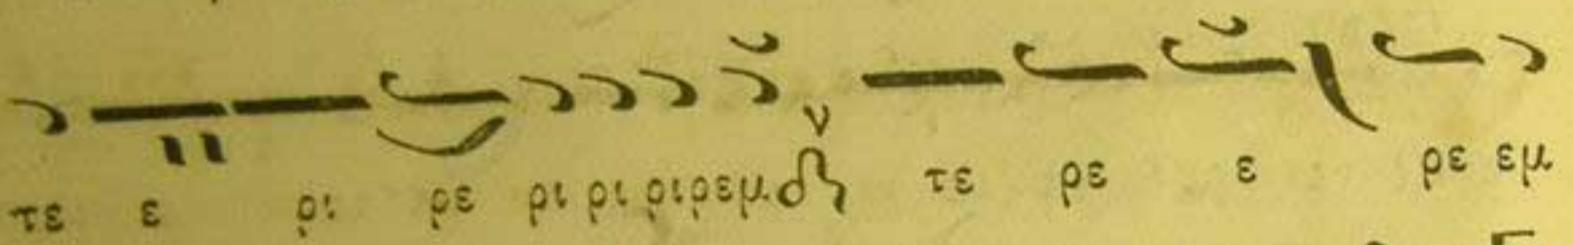 τε ε ρι ρε ρι ρι ρι ρεμ ν τε ρε ε ρε εμ